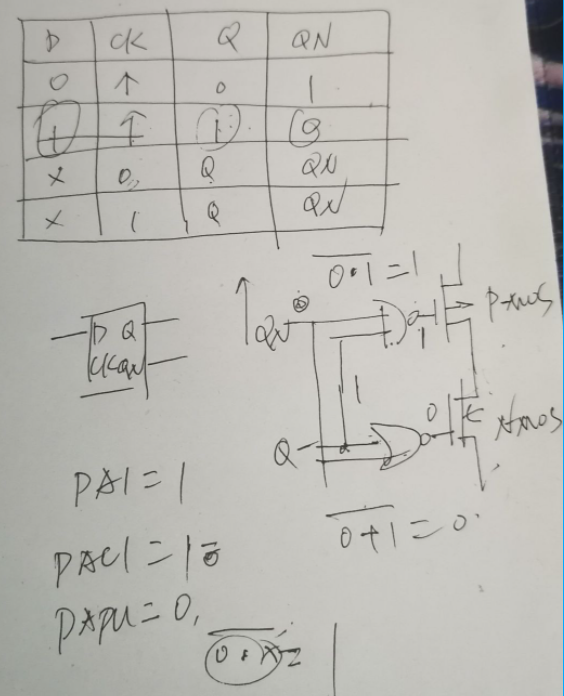 D CK Q QN
0 ↑ 0 1
1 ↑ 1 0
X 0 Q QN
X 1 Q QN
0·1=1
QN
1
P-mos
D Q
CK QN
1
0
Nmos
Q
0+1=0
PA1=1
PAC1=10
PAPU=0,
0·X=1